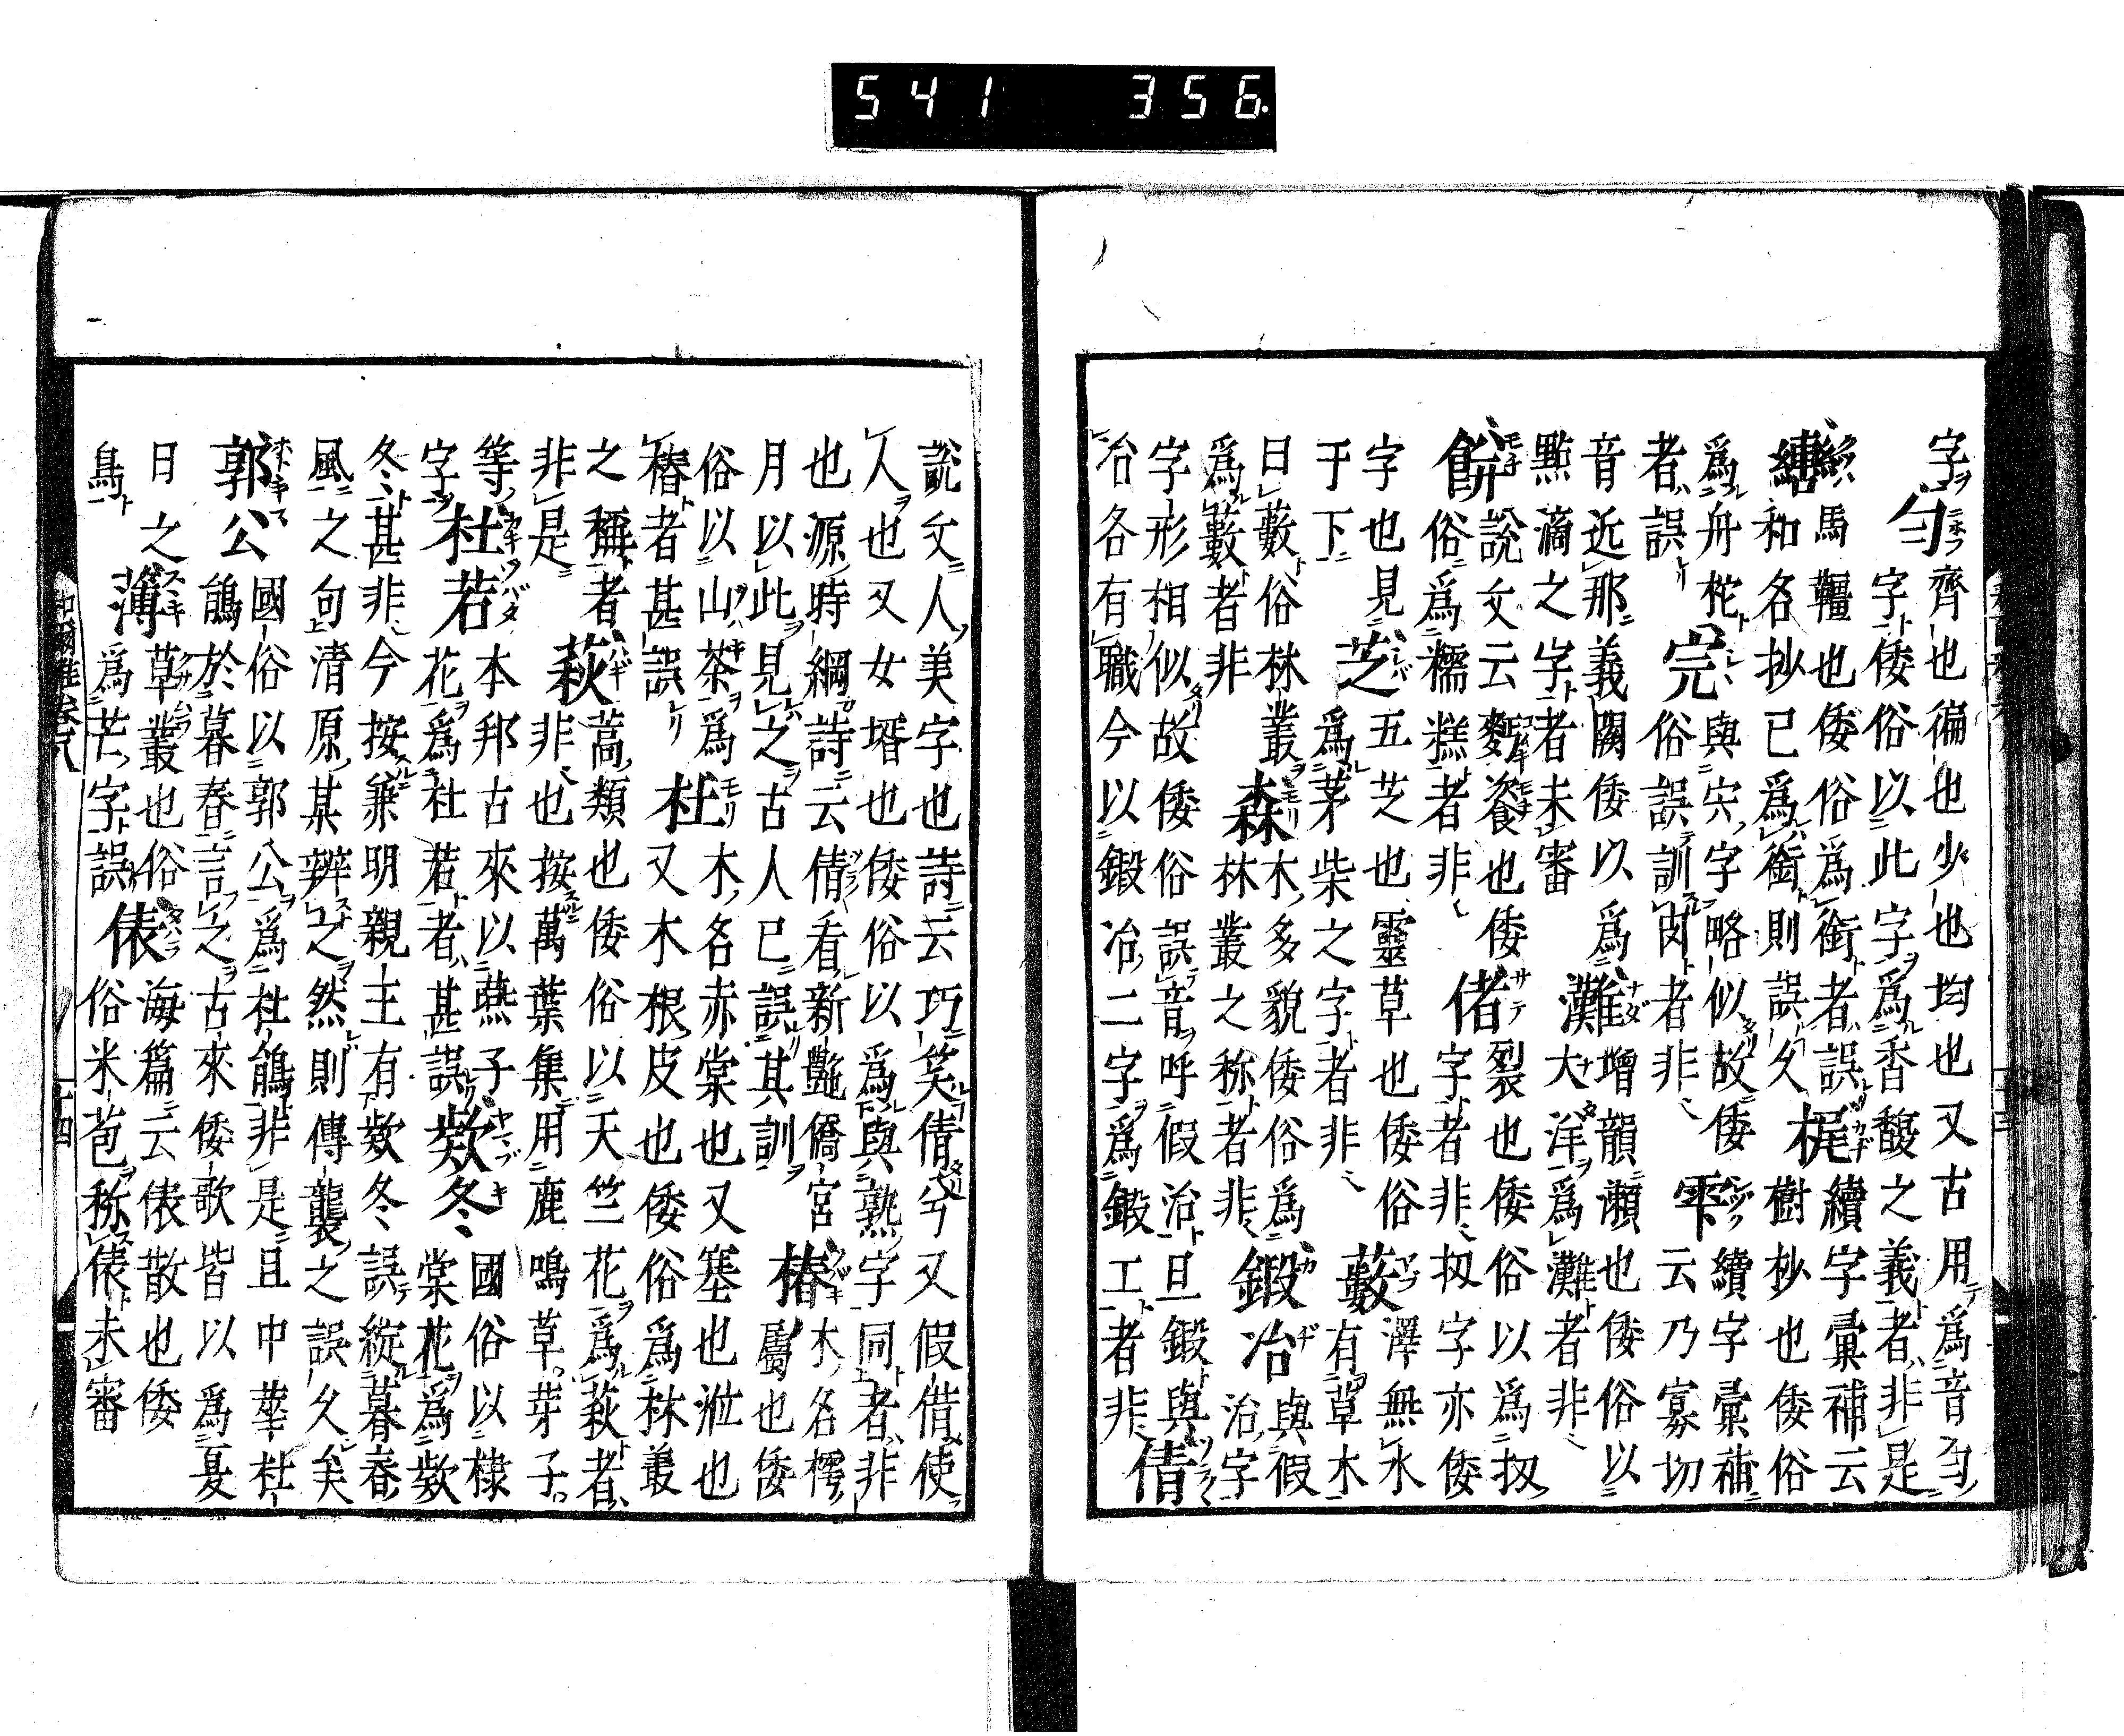 541 356.
字ヲ匀齊也徧也少也均也又古用テ爲音ノ勻
字倭俗以此字爲香馥之義者非是
轡馬韁也倭俗爲銜者誤 梶續字彙補云
和名抄已爲銜則誤久 樹杪也倭俗
爲舟柁 完與宍字略似故倭 雫續字彙補
者誤 俗誤訓肉者非 云乃寡切
音近那義闕倭以爲 灘增韻瀨也倭俗以
點滴之字者未審 大洋爲灘者非
餅說文云麪餈也倭 偖裂也倭俗以爲扨
俗爲糯糕者非 字者非扨字亦倭
字也見 芝五芝也靈草也倭俗 藪澤無水
于下 爲茅柴之字者非 有草木
曰藪俗林叢 森木多貌倭俗爲 鍛冶與假
爲藪者非 林叢之称者非 治字
字形相似故倭俗誤音呼假治旦鍛與
冶各有職今以鍛冶二字爲鍛工者非 倩
說文人美字也詩云巧笑倩兮又假借使
人也又女壻也倭俗以爲與熟字同者非
也源時綱詩云倩看新艶僑宮 椿木名樗
月以此見之古人已誤其訓 屬也倭
俗以山茶爲 木名赤棠也又塞也澁也
椿者甚誤 杜又木根皮也倭俗爲林叢
之稱者 萩蒿類也倭俗以天竺花爲萩者
非是 非也按萬葉集用鹿鳴草芽子
等 杜若本邦古來以燕子 欵冬國俗以棣
字 花爲杜若者甚誤 棠花爲欵
冬甚非今按兼明親王有欵冬誤綻暮春
風之句清原某辨之然則傳襲之誤久矣
郭公國俗以郭公爲杜鵑非是且中華杜
鵑於暮春言之古來倭歌皆以爲夏
日之 薄草叢也俗 俵海篇云俵散也倭
鳥 爲芒字誤 俗米苞称俵未審
和爾雅卷八
十四